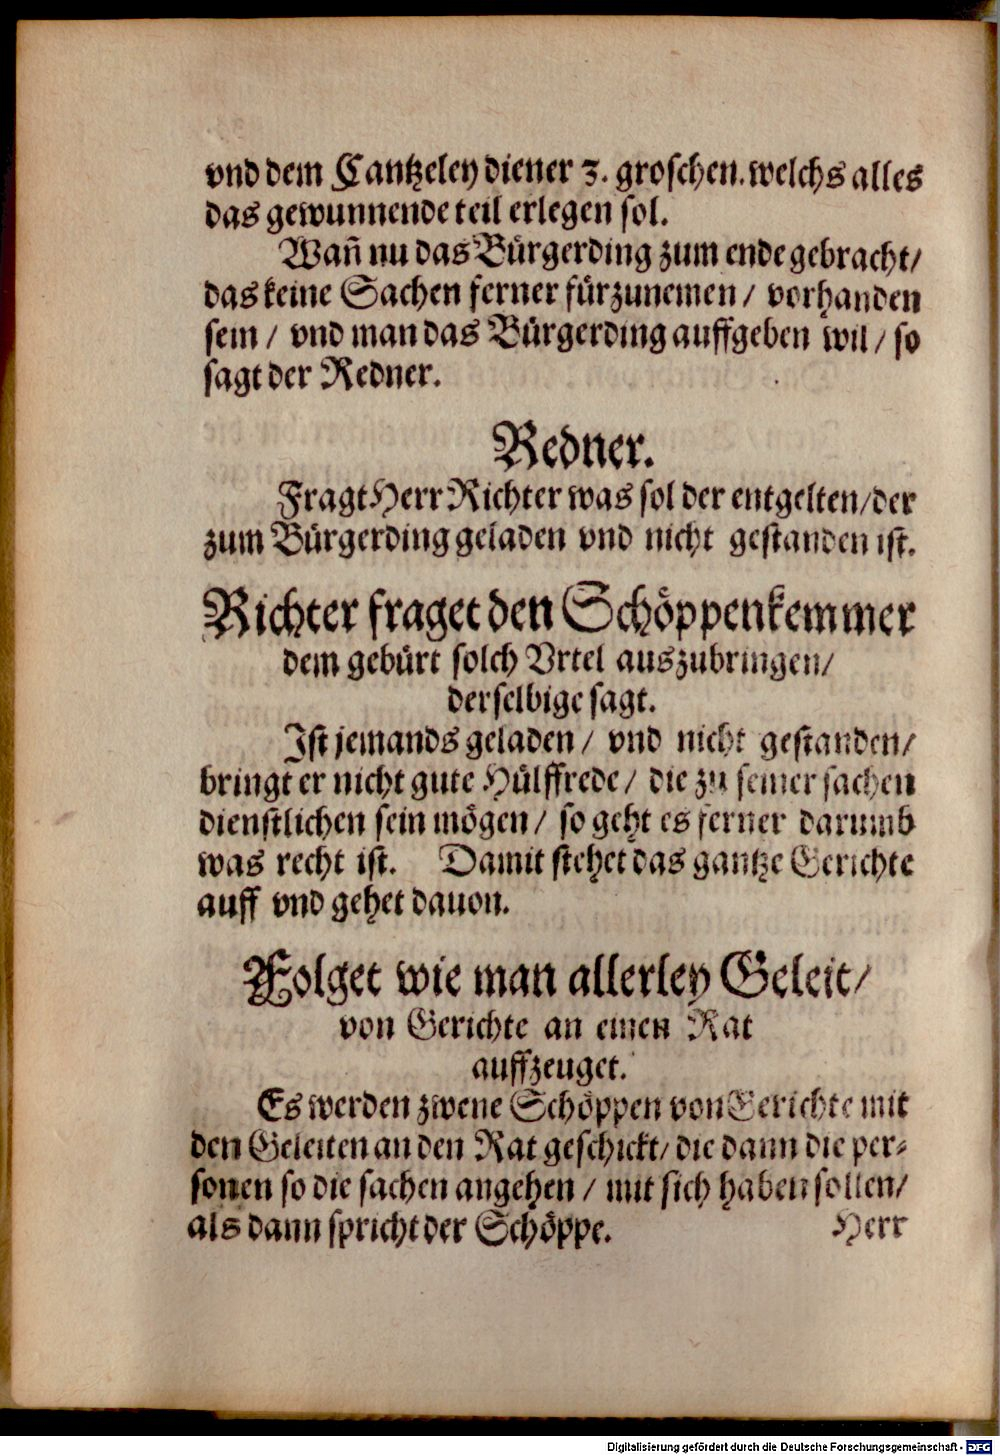 vnd dem Cantzeley diener 3. groschen. welchs alles
das gewunnende teil erlegen sol.
Wañ nu das Bürgerding zum ende gebracht/
das keine Sachen ferner fürzunemen / vorhanden
sein / vnd man das Bürgerding auffgeben wil / so
sagt der Redner.
Redner.
Fragt Herr Richter was sol der entgelten/der
zum Bürgerding geladen vnd nicht gestanden ist.
Richter fraget den Schöppenkemmer
dem gebürt solch Vrtel auszubringen/
derselbige sagt.
Ist jemands geladen / vnd nicht gestanden/
bringt er nicht gute Hülffrede / die zu seiner sachen
dienstlichen sein mögen / so geht es ferner darumb
was recht ist. Damit stehet das gantze Gerichte
auff vnd gehet dauon.
Folget wie man allerley Geleit/
von Gerichte an einen Rat
auffzeuget.
Es werden zwene Schöppen von Gerichte mit
den Geleiten an den Rat geschickt/ die dann die per-
sonen so die sachen angehen / mit sich haben sollen/
als dann spricht der Schöppe. Herr
Digitalisierung gefördert durch die Deutsche Forschungsgemeinschaft - DFG